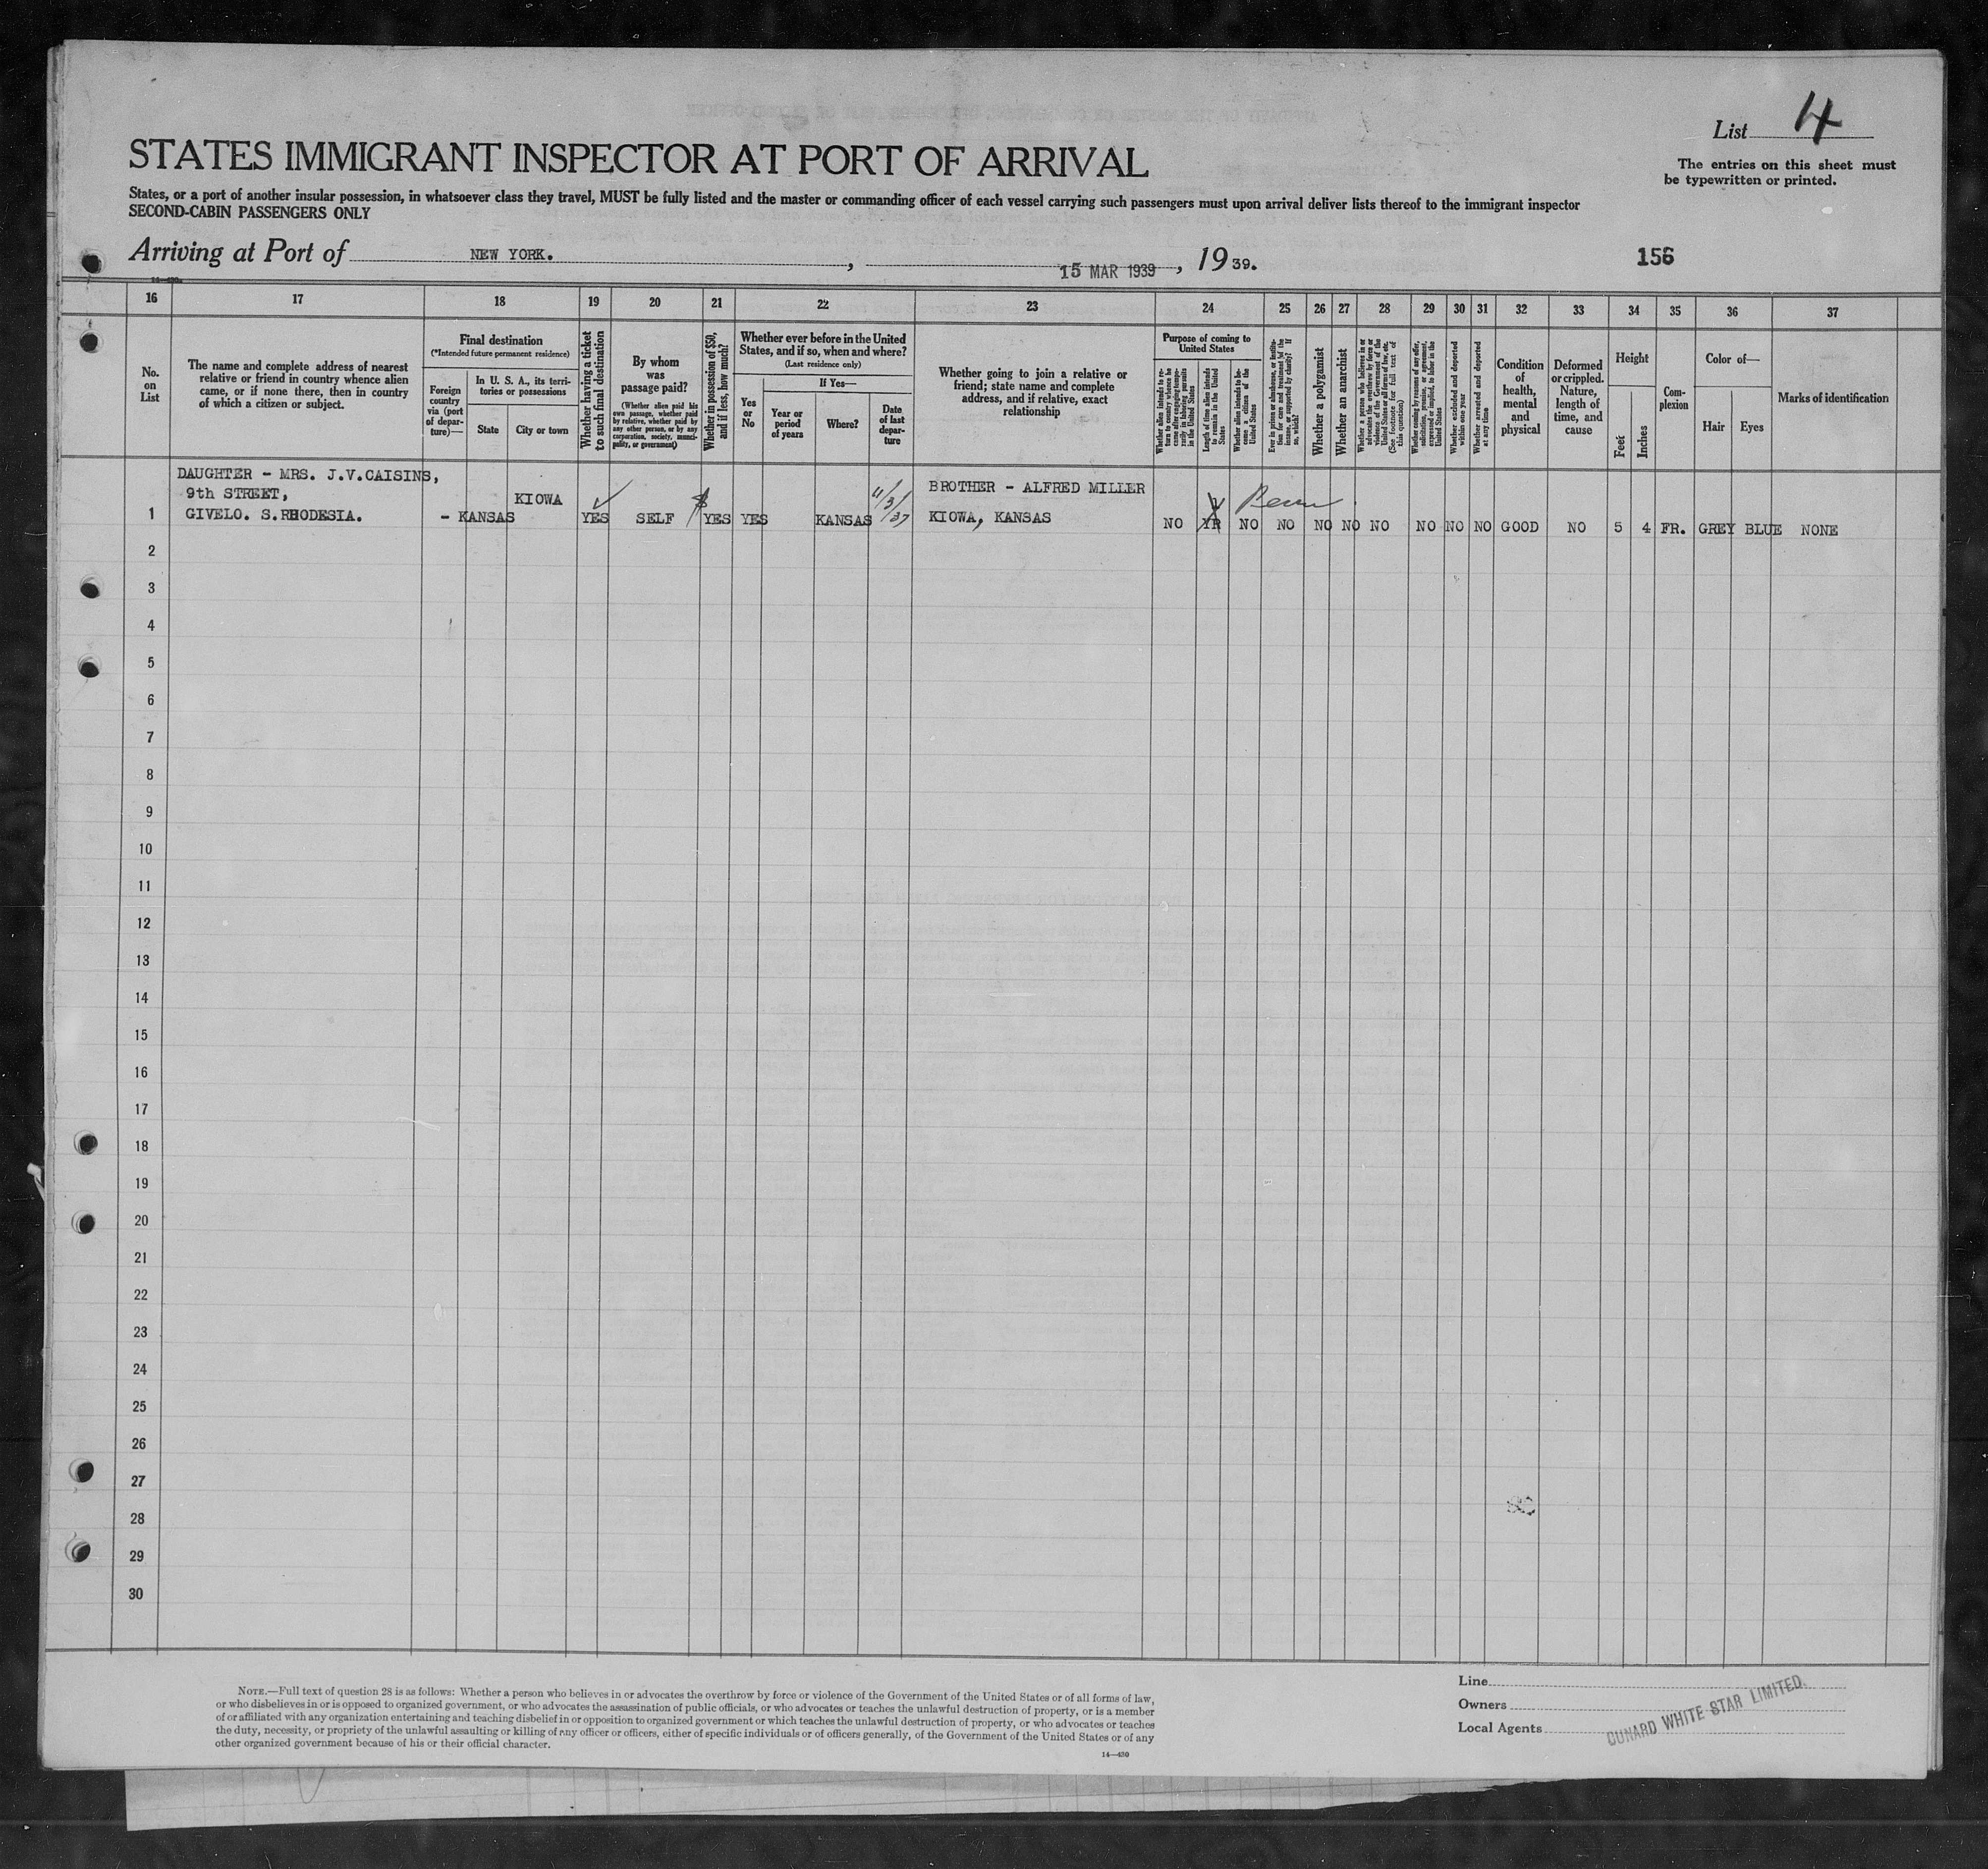 List 4
The entries on this sheet must
be typewritten or printed.
STATES IMMIGRANT INSPECTOR AT PORT OF ARRIVAL
States, or a port of another insular possession, in whatsoever class they travel, MUST be fully listed and the master or commanding officer of each vessel carrying such passengers must upon arrival deliver lists thereof to the immigrant inspector
SECOND-CABIN PASSENGERS ONLY
Arriving at Port of NEW YORK. , 15 MAR 1939 , 19 39.
156
16 17 18 19 20 21 22 23 24 25 26 27 28 29 30 31 32 33 34 35 36 37
No.
on
List
The name and complete address of nearest
relative or friend in country whence alien
came, or if none there, then in country
of which a citizen or subject.
Final destination
(*Intended future permanent residence)
Foreign
country
via (port
of depar-
ture)—
In U. S. A., its terri-
tories or possessions
State
City or town
Whether having a ticket
to such final destination
By whom
was
passage paid?
(Whether alien paid his
own passage, whether paid
by relative, whether paid by
any other person, or by any
corporation, society, munici-
pality, or government)
Whether in possession of $50,
and if less, how much?
Whether ever before in the United
States, and if so, when and where?
(Last residence only)
Yes
or
No
If Yes—
Year or
period
of years
Where?
Date
of last
depar-
ture
Whether going to join a relative or
friend; state name and complete
address, and if relative, exact
relationship
Purpose of coming to
United States
Whether alien intends to re-
turn to country whence he
came after engaging tempo-
rarily in laboring pursuits
in the United States
Length of time alien intends
to remain in the United
States
Whether alien intends to be-
come a citizen of the
United States
Ever in prison or almshouse, or institu-
tion for care and treatment of the
insane, or supported by charity? If
so, which?
Whether a polygamist
Whether an anarchist
Whether a person who believes in or
advocates the overthrow by force or
violence of the Government of the
United States or all forms of law, etc.
(See footnote for full text of
this question)
Whether coming by reason of any offer,
solicitation, promise, or agreement,
expressed or implied, to labor in the
United States
Whether excluded and deported
within one year
Whether arrested and deported
at any time
Condition
of
health,
mental
and
physical
Deformed
or crippled.
Nature,
length of
time, and
cause
Height
Feet
Inches
Com-
plexion
Color of—
Hair
Eyes
Marks of identification
DAUGHTER - MRS. J.V.CAISINS,
9th STREET,
GIVELO. S.RHODESIA.
1 - KANSAS KIOWA YES SELF $ YES YES KANSAS 11/3/37
BROTHER - ALFRED MILLER
KIOWA, KANSAS
NO YR NO NO NO NO NO NO NO NO GOOD NO 5 4 FR. GREY BLUE NONE
2
3
4
5
6
7
8
9
10
11
12
13
14
15
16
17
18
19
20
21
22
23
24
25
26
27
28
29
30
NOTE.—Full text of question 28 is as follows: Whether a person who believes in or advocates the overthrow by force or violence of the Government of the United States or of all forms of law,
or who disbelieves in or is opposed to organized government, or who advocates the assassination of public officials, or who advocates or teaches the unlawful destruction of property, or is a member
of or affiliated with any organization entertaining and teaching disbelief in or opposition to organized government or which teaches the unlawful destruction of property, or who advocates or teaches
the duty, necessity, or propriety of the unlawful assaulting or killing of any officer or officers, either of specific individuals or of officers generally, of the Government of the United States or of any
other organized government because of his or their official character.
14—430
Line
Owners
Local Agents
CUNARD WHITE STAR LIMITED.